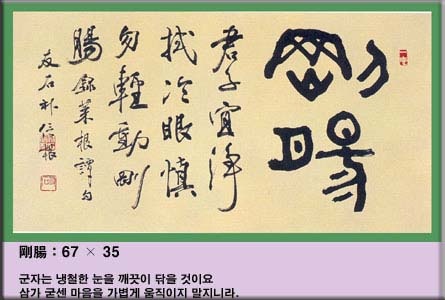 剛腸
君子宜淨
拭冷眼慎
勿輕動剛
腸 錄菜根譚句
友石 朴
剛腸 : 67 × 35
군자는 냉철한 눈을 깨끗이 닦을 것이요
삼가 굳센 마음을 가볍게 움직이지 말지니라.